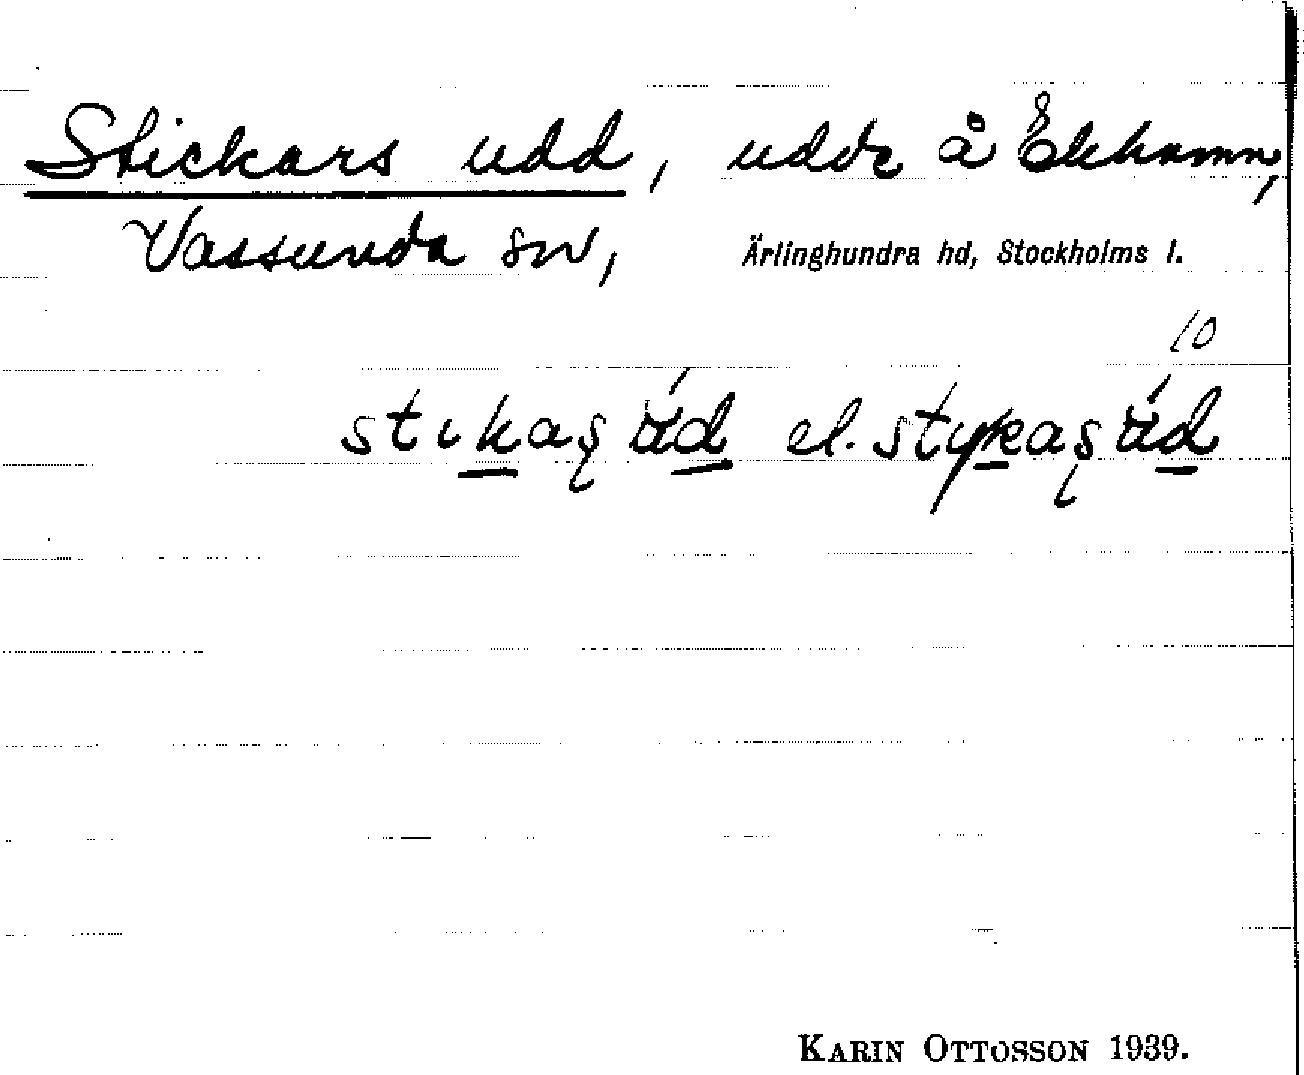 Stickars udd, udde å Ekhamn,
Vassunda sn, Ärlinghundra hd, Stockholms l.
10
stikaʂ úd el. stykaʂ úd
KARIN OTTOSSON 1939.